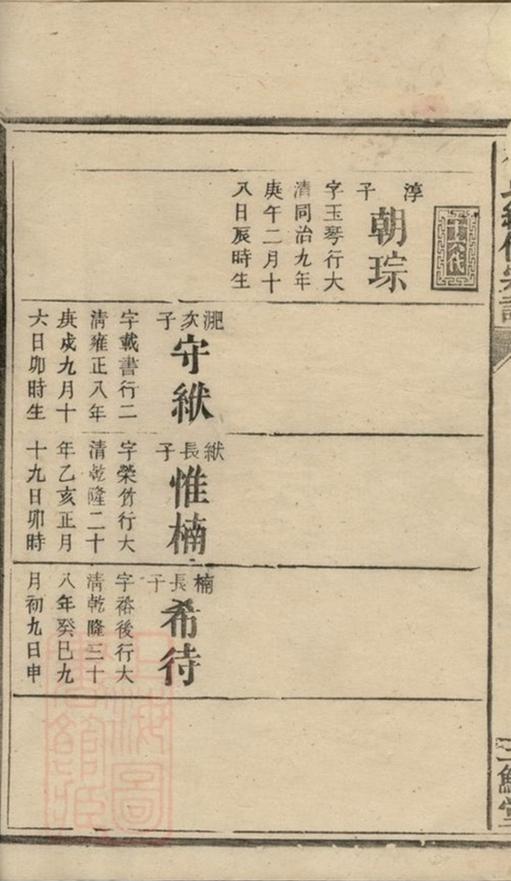 二十六代
淳子
朝琮
字玉琴行大
清同治九年
庚午二月十
八日辰時生
淝次子
守紱
字載書行二
清雍正八年
庚戍九月十
六日卯時生
紱長子
惟楠
字榮竹行大
清乾隆二十
年乙亥正月
十九日卯時
楠長子
希待
字裕後行大
清乾隆三十
八年癸巳九
月初九日申